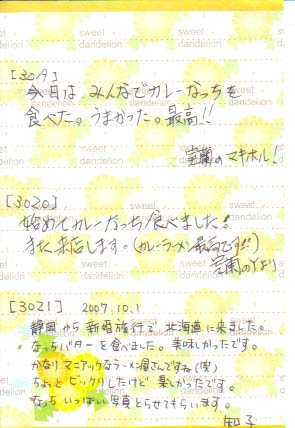 sweet dandelion
[3019]
今日は みんなでカレーなっちを
食べた。うまかった。最高!!
室蘭のマキホル!
[3020]
始めてカレーなっち食べました!
また来店します。(カレーラーメン最高です!!)
室蘭のYより
[3021] 2007.10.1
静岡から新婚旅行で北海道に来ました。
なっちバターを食べました。美味しかったです。
かなりマニアックなラーメン屋さんですね(笑)
ちょっとビックリしたけど 楽しかったです。
なっち いっぱい写真とらせてもらいます。
知子